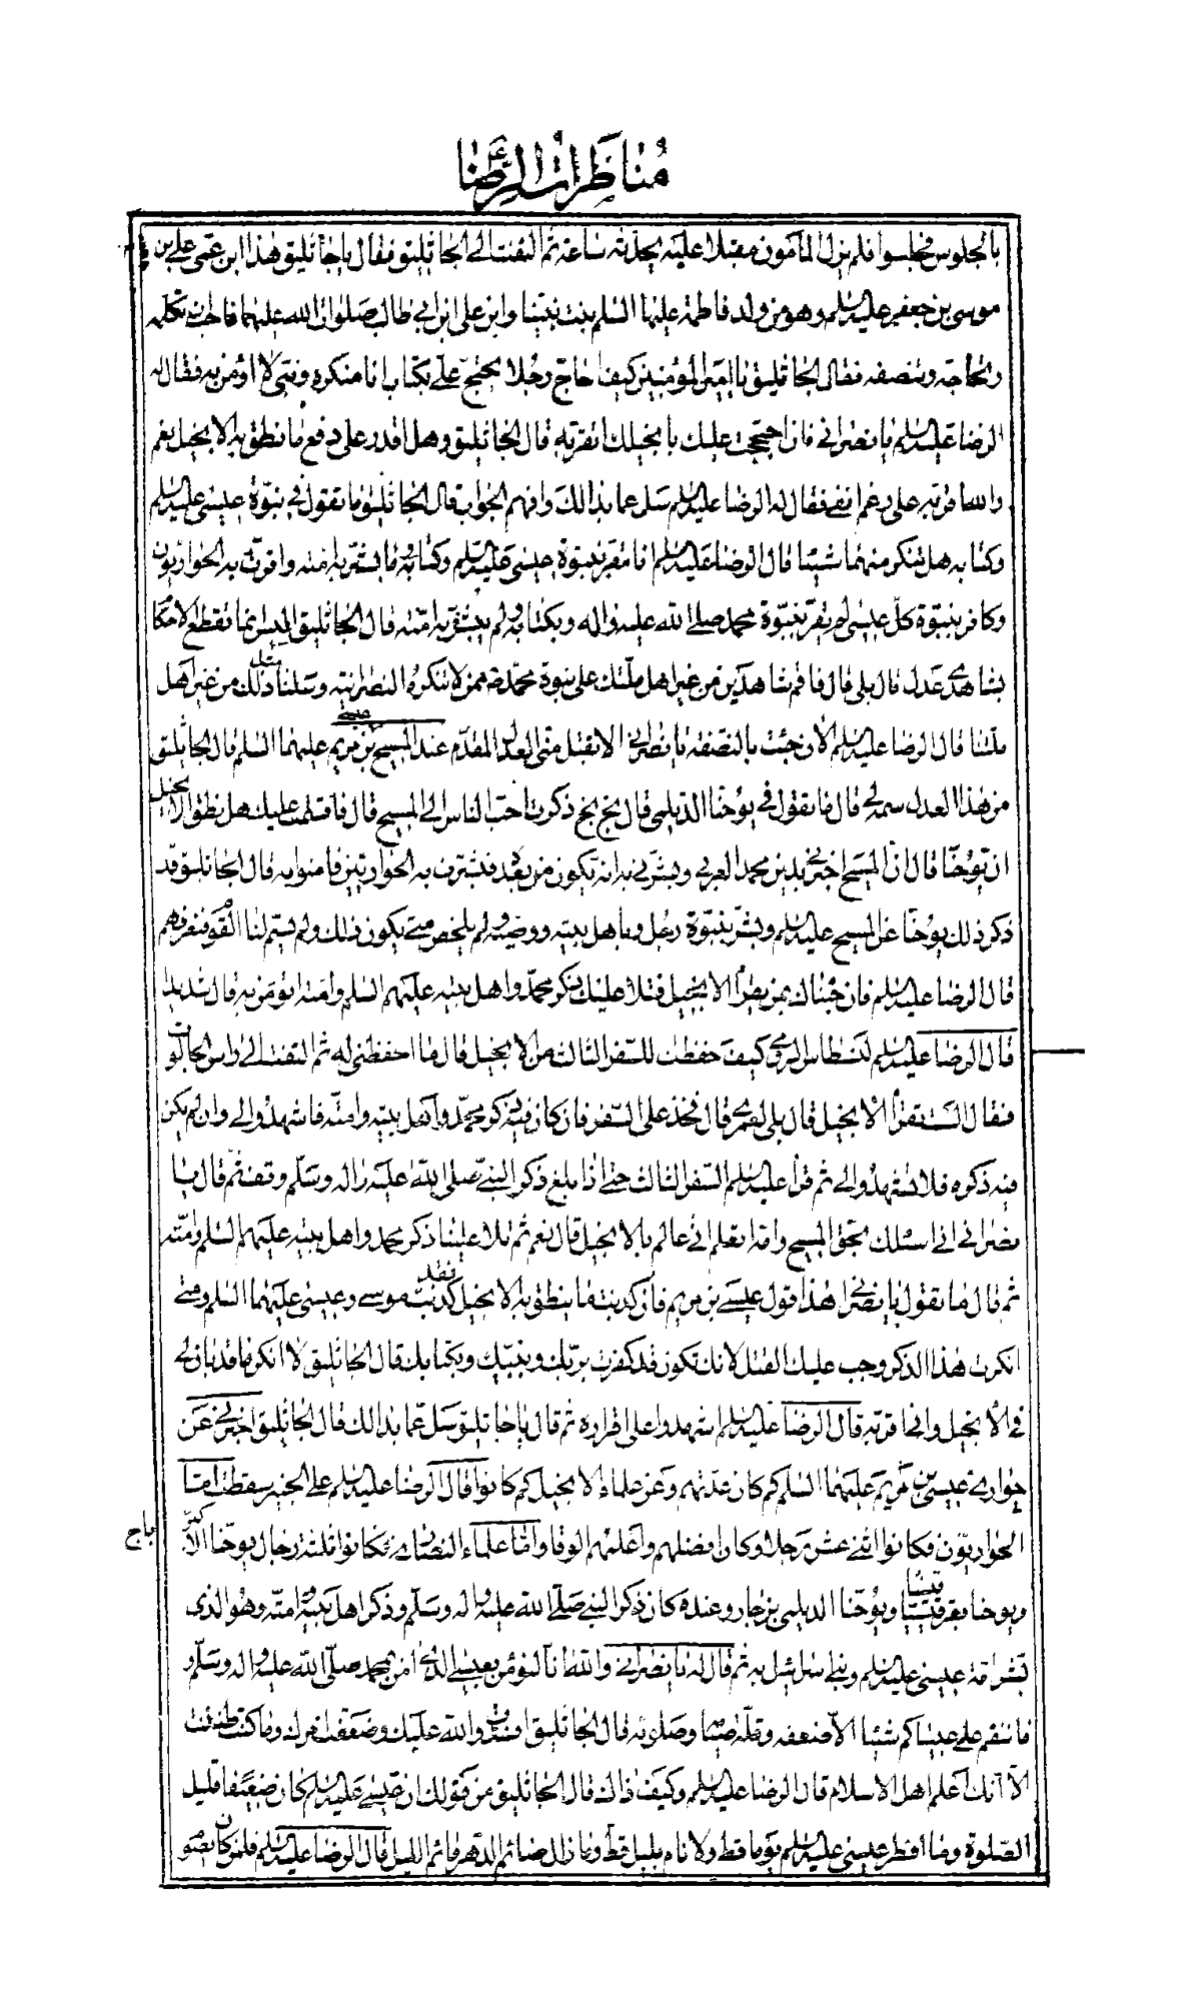 مناظرات الرضا ع
بالجلوس فجلسوا فلم يزل المأمون مقبلا عليه يحدثه ساعة ثم التفت الى الجاثليق فقال يا جاثليق هذا ابن عمى على بن
موسى بن جعفر عليه السلم وهو من ولد فاطمة عليها السلم بنت نبينا وابن على ابن ابى طالب صلوات الله عليهما فاحب ان تكلمه
وتحاجه وتنصفه فقال الجاثليق يا امير المؤمنين كيف احاج رجلا يحتج على بكتاب انا منكره ونبى لا اؤمن به فقال له
الرضا عليه السلم يا نصرانى فان احتججت عليك بانجيلك اتقر به قال الجاثليق وهل اقدر على دفع ما نطق به الانجيل نعم
والله اقر به على رغم انفى فقال له الرضا عليه السلم سل عما بدا لك وافهم الجواب قال الجاثليق ما تقول فى نبوة عيسى عليه السلم
وكتابه هل تنكر منهما شيئا قال الرضا عليه السلم انا مقر بنبوة عيسى عليه السلم وكتابه وما بشر به امته واقرت به الحواريون
وكافر بنبوة كل عيسى لم يقر بنبوة محمد صلى الله عليه واله وبكتابه ولم يبشر به امته قال الجاثليق اليس انما تقطع الاحكام
بشاهدى عدل قال بلى قال فاقم شاهدين من غير اهل ملتك على نبوة محمد ص ممن لا تنكره النصرانية وسلنا مثل ذلك من غير اهل
ملتنا قال الرضا عليه السلم الان جئت بالنصفة يا نصرانى الا تقبل منى العدل المقدم عند المسيح عيسى بن مريم عليهما السلم قال الجاثليق
من هذا العدل سمه لى قال ما تقول فى يوحنا الديلمى قال بخ بخ ذكرت احب الناس الى المسيح قال فاقسمت عليك هل نطق الانجيل
ان يوحنا قال ان المسيح اخبرنى بدين محمد العربى وبشرنى به انه يكون من بعده فبشرت به الحواريين فامنوا به قال الجاثليق قد
ذكر ذلك يوحنا عن المسيح عليه السلم وبشر بنبوة رجل وباهل بيته ووصيه ولم يلخص متى يكون ذلك ولم يسم لنا القوم فنعرفهم
قال الرضا عليه السلم فان جئناك بمن يقرأ الانجيل فتلا عليك ذكر محمد واهل بيته عليهم السلم وامته اتؤمن به قال شديدا
قال الرضا عليه السلم لنسطاس الرومى كيف حفظك للسفر الثالث من الانجيل قال ما احفظنى له ثم التفت الى راس الجالوت
فقال الست تقرأ الانجيل قال بلى لعمرى قال فخذ على السفر فان كان فيه ذكر محمد واهل بيته وامته فاشهدوا لى وان لم يكن
فيه ذكره فلا تشهدوا لى ثم قرأ عليه السلم السفر الثالث حتى اذا بلغ ذكر النبى صلى الله عليه واله وسلم وقف ثم قال يا
نصرانى انى اسئلك بحق المسيح وامه اتعلم انى عالم بالانجيل قال نعم ثم تلا علينا ذكر محمد واهل بيته عليهم السلم وامته
ثم قال ما تقول يا نصرانى هذا قول عيسى بن مريم فان كذبت ما ينطق به الانجيل فقد كذبت موسى وعيسى عليهما السلم ومتى
انكرت هذا الذكر وجب عليك القتل لانك تكون قد كفرت بربك وبنبيك وبكتابك قال الجاثليق لا انكر ما قد بان لى
فى الانجيل وانى لمقر به قال الرضا عليه السلم اشهدوا على اقراره ثم قال يا جاثليق سل عما بدا لك قال الجاثليق اخبرنى عن
حوارى عيسى بن مريم عليهما السلم كم كان عدتهم وعن علماء الانجيل كم كانوا قال الرضا عليه السلم على الخبير سقطت اما
الحواريون فكانوا اثنى عشر رجلا وكان افضلهم واعلمهم الوقا واما علماء النصارى فكانوا ثلثة رجال يوحنا الاكبر
باج
ويوحنا بقرقيسيا ويوحنا الديلمى بزجار وعنده كان ذكر النبى صلى الله عليه واله وسلم وذكر اهل بيته وامته وهو الذى
بشر امة عيسى عليه السلم وبنى اسرائيل به ثم قال له يا نصرانى والله انا لنؤمن بعيسى الذى امن بمحمد صلى الله عليه واله وسلم و
ما ننقم على عيساكم شيئا الا ضعفه وقلة صيامه وصلوته قال الجاثليق افسدت والله علمك وضعفت امرك وما كنت ظننت
الا انك اعلم اهل الاسلام قال الرضا عليه السلم وكيف ذاك قال الجاثليق من قولك ان عيسى عليه السلم كان ضعيفا قليل
الصلوة وما افطر عيسى عليه السلم يوما قط ولا نام بليل قط وما زال صائم الدهر قائم الليل قال الرضا عليه السلم فلمن كان يصو